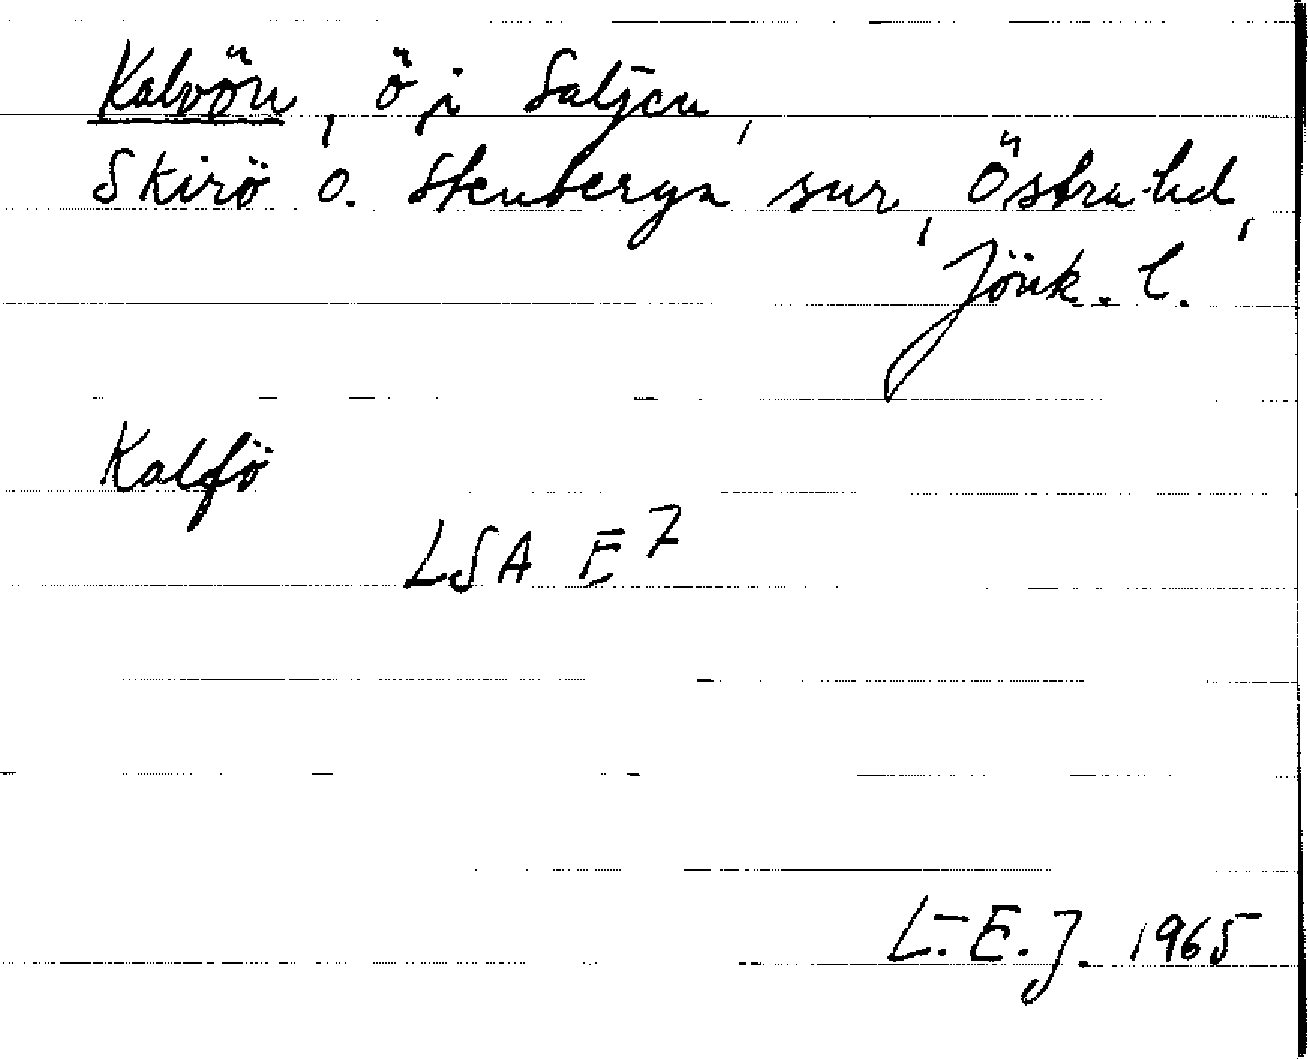 Kalvön, ö i Saljen,
Skirö o. Stenberga snr, Östra hd,
Jönk. l.
Kalfö
LSA E 7
L.-E.J. 1965